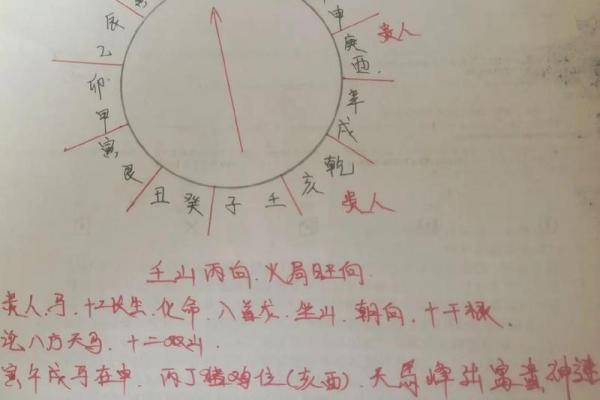 辰
申
乙
庚
贵人
卯
酉
甲
辛
寅
戌
艮
乾
丑
癸
子
壬
亥
贵人
壬山丙向.火局旺向.
贵人.马.十二长生.化命.八首龙.坐山.朝向.十干禄.
论八方天马.十二双山.
寅午戌马在申.丙丁猪鸡位(亥酉).天马峰出富贵神速